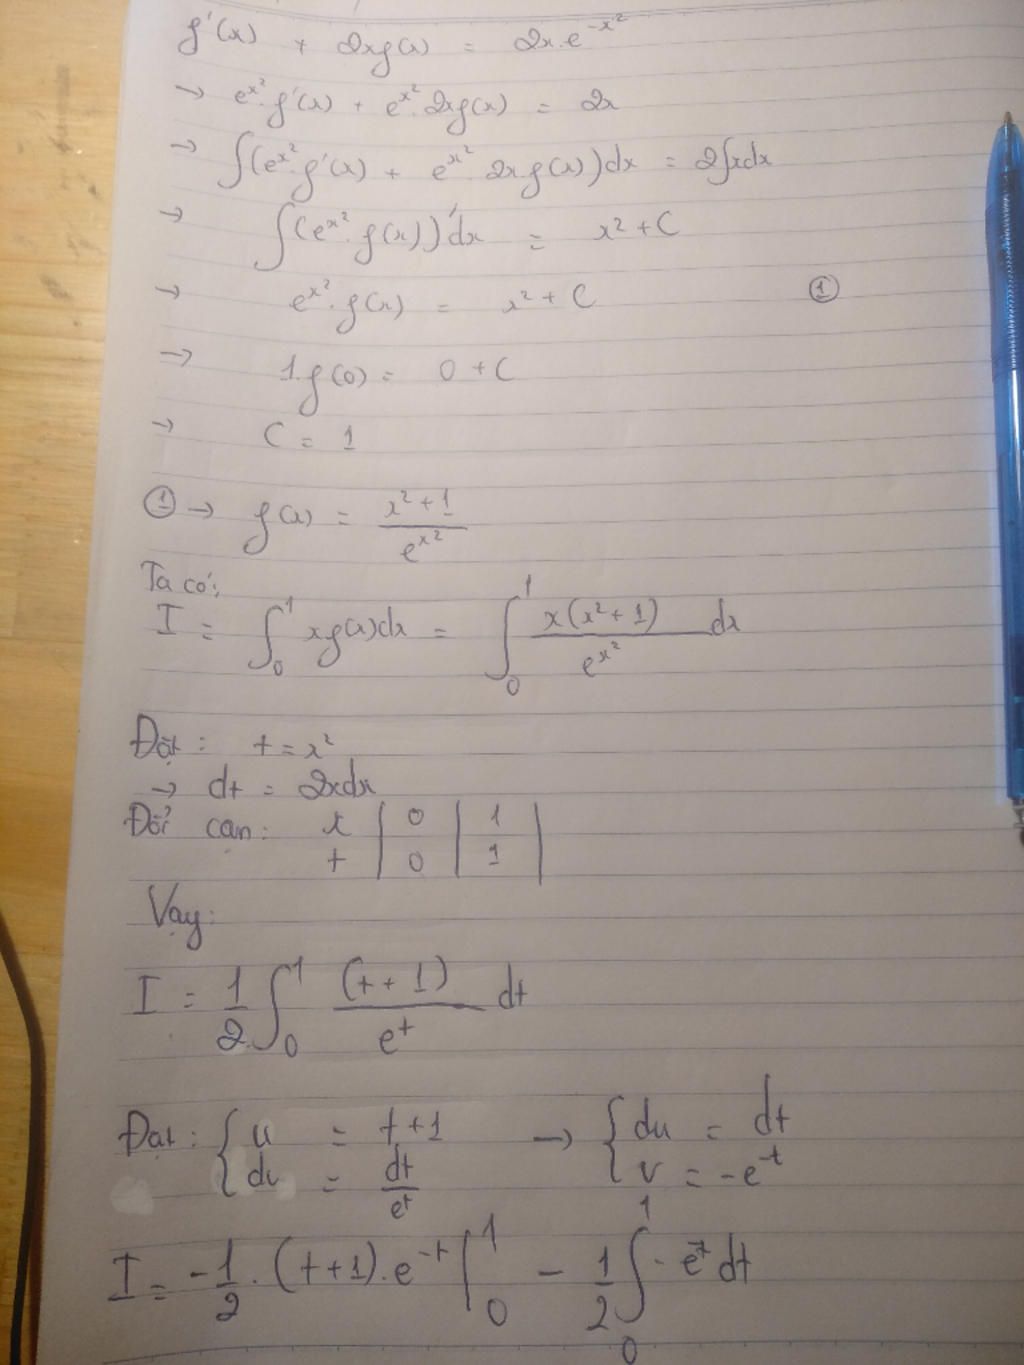 f'(x) + 2xf(x) = 2x.e^{-x²}
→ e^{x²}.f'(x) + e^{x²}.2xf(x) = 2x
→ ∫(e^{x²}.f'(x) + e^{x²}.2x.f(x))dx = 2∫xdx
→ ∫(e^{x²}.f(x))'dx = x² + C
→ e^{x²}.f(x) = x² + C ①
→ 1.f(0) = 0 + C
→ C = 1
① → f(x) = \frac{x²+1}{e^{x²}}
Ta có:
I = ∫_0^1 xf(x)dx = ∫_0^1 \frac{x(x²+1)}{e^{x²}} dx
Đặt: t = x²
→ dt = 2xdx
Đổi cận: x | 0 | 1 |
t | 0 | 1 |
Vậy:
I = \frac{1}{2} ∫_0^1 \frac{(t+1)}{e^t} dt
Đặt: { u = t+1 → { du = dt
dv = \frac{dt}{e^t} v = -e^{-t}
I = -\frac{1}{2}.(t+1).e^{-t} |_0^1 - \frac{1}{2} ∫_0^1 -e^{-t} dt